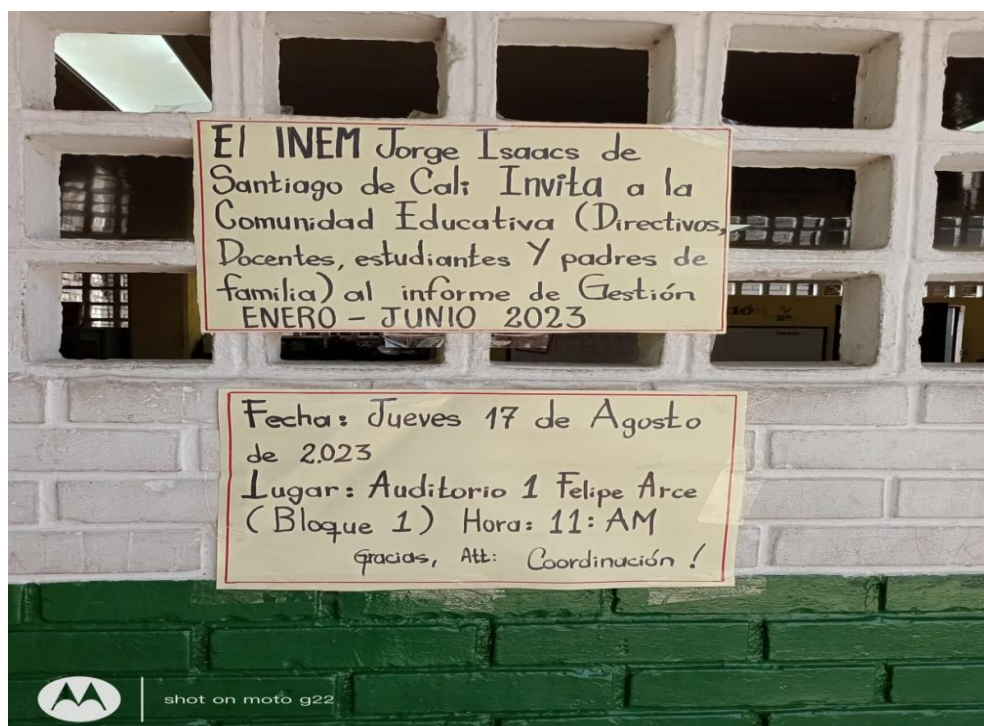 El INEM Jorge Isaacs de
Santiago de Cali Invita a la
Comunidad Educativa (Directivos,
Docentes, estudiantes Y padres de
familia) al informe de Gestión
ENERO - JUNIO 2023
Fecha: Jueves 17 de Agosto
de 2.023
Lugar: Auditorio 1 Felipe Arce
(Bloque 1) Hora: 11: AM
Gracias, Att: Coordinación !
shot on moto g22